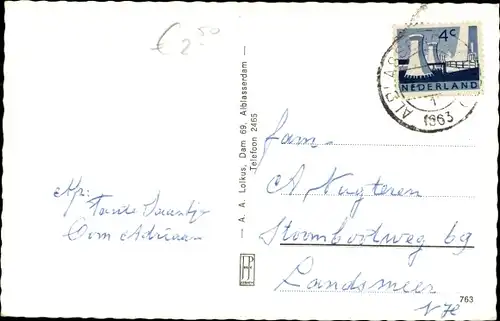 € 2.50
4c
NEDERLAND
ALBLAS
1963
A. A. Lolkus, Dam 69, Alblasserdam
Telefoon 2465
Afz:
Tante Jaantje
Oom Adriaan
Fam.
A Nuyteren
Stoombootweg 69
Landsmeer
N H
763